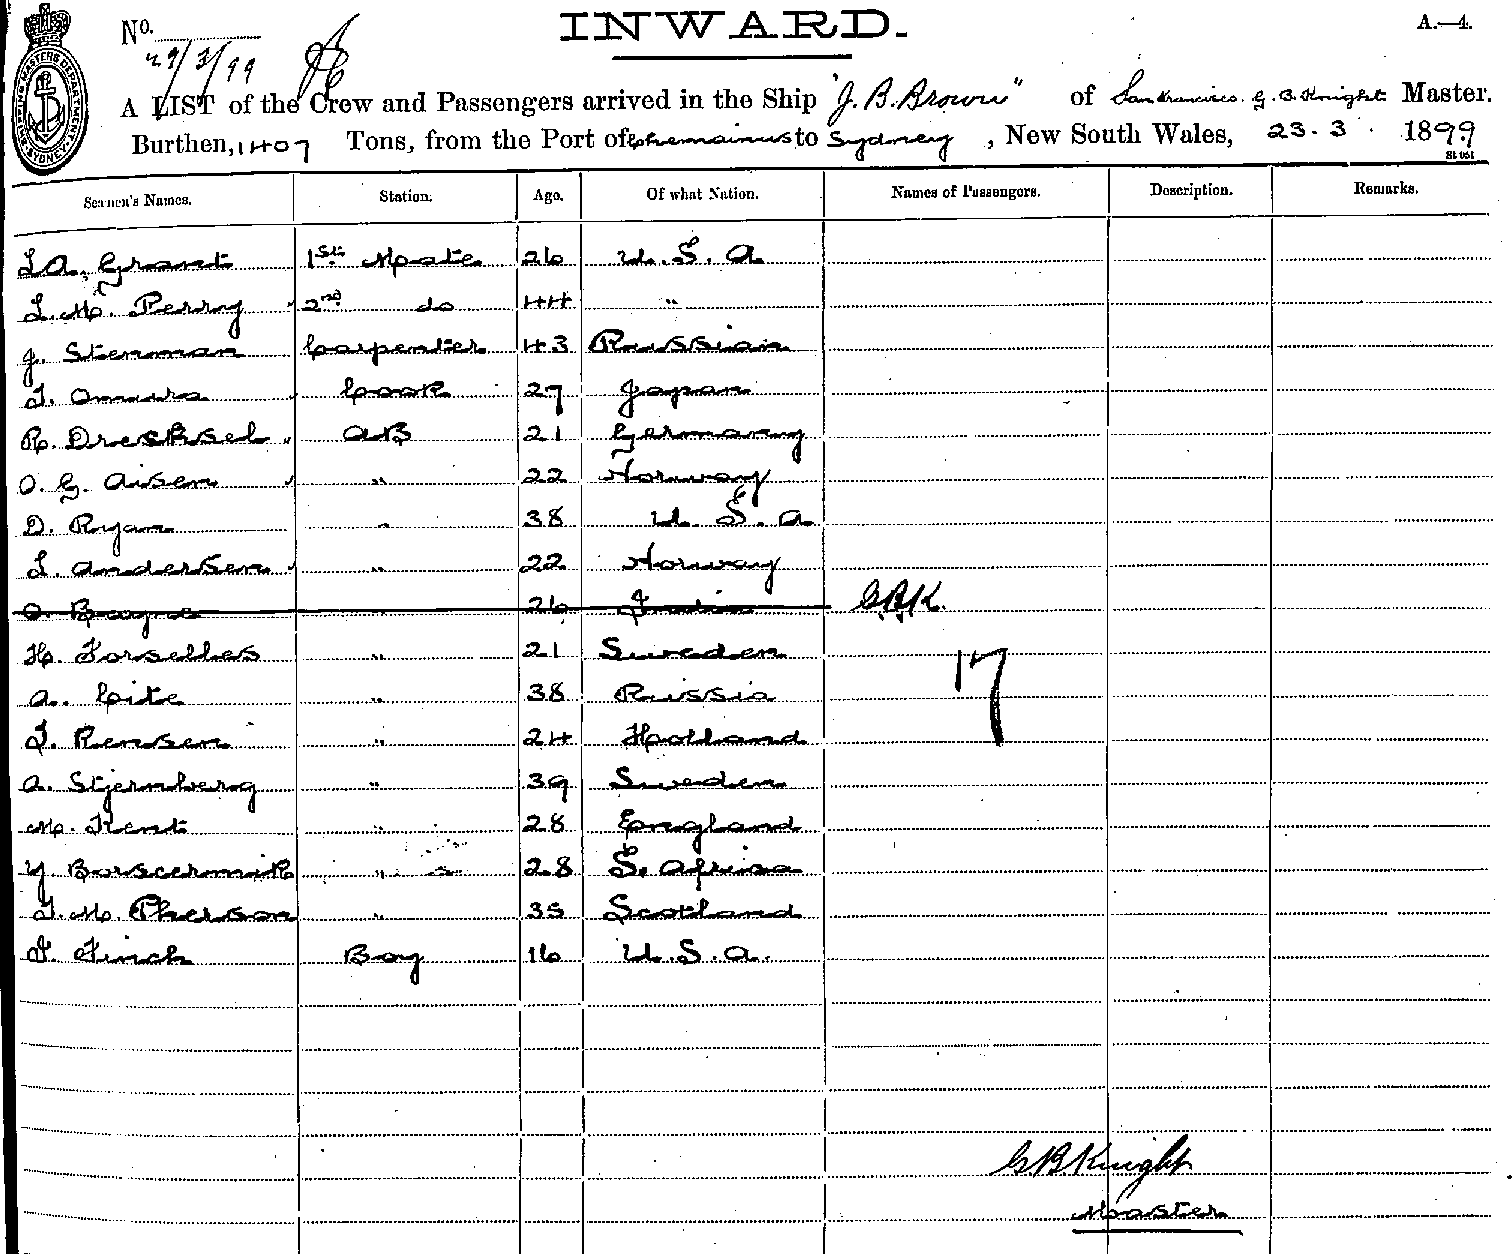 INWARD.
A.—4.
No.
29/3/99
SHIPPING MASTERS DEPARTMENT SYDNEY
A LIST of the Crew and Passengers arrived in the Ship "J. B. Brown" of San Francisco. G. B. Knight Master.
Burthen, 1407 Tons, from the Port of Chemainus to Sydney, New South Wales, 23.3. 1899
Seamen's Names. Station. Age. Of what Nation. Names of Passengers. Description. Remarks.
L A. Grant 1st Mate 26 U.S.A
L. M. Perry 2nd do 44 "
J. Stenman Carpenter 43 Russian
T. Omura Cook 27 Japan
R. Drechsel AB 21 Germany
O. G. Aisen " 22 Norway
D. Ryan " 38 U.S.A
L. Andersen " 22 Norway
O. Bayne " 26 India G.B.K.
H. Forselles " 21 Sweden
A. Cite " 38 Russia
17
F. Rensen " 24 Holland
A. Stjernberg " 39 Sweden
M. Kent " 28 England
Y. Borscermik " 28 S. Africa
T. Mc Pherson " 35 Scotland
F. Finch Boy 16 U.S.A.
G B Knight
Master